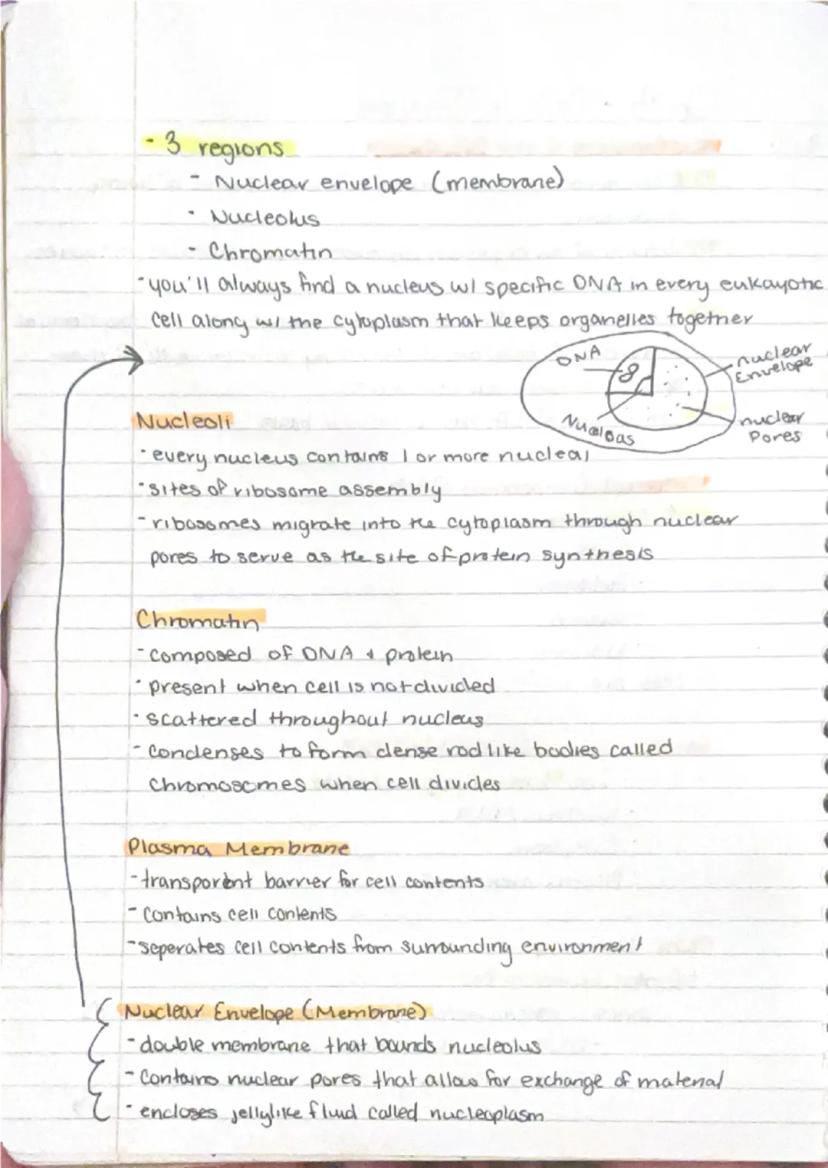 - 3 regions
- Nuclear envelope (membrane)
- Nucleolus
- Chromatin
- you'll always find a nucleus w/ specific DNA in every eukayotic
cell along w/ the cytoplasm that keeps organelles together
DNA
nuclear
Envelope
Nucleoli
Nucleoas
nuclear
Pores
- every nucleus contains 1 or more nucleai
- sites of ribosome assembly
- ribosomes migrate into the cytoplasm through nuclear
pores to serve as the site of protein synthesis
Chromatin
- composed of DNA & protein
- present when cell is not divided
- scattered throughout nucleus
- condenses to form dense rod like bodies called
chromosomes when cell divides
Plasma Membrane
- transparent barrier for cell contents
- contains cell contents
- seperates cell contents from surrounding environment
Nuclear Envelope (Membrane)
- double membrane that bounds nucleolus
- contains nuclear pores that allow for exchange of material
- encloses jellylike fluid called nucleoplasm